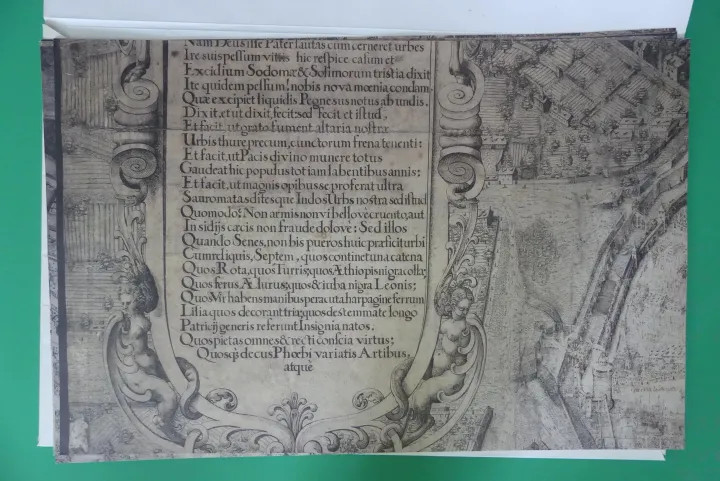 Nam Deus ille Pater lautas cum cerneret urbes
Ire suis pessum vitiis hic respice casum et
Excidium Sodomæ & Solimorum tristia dixit
Ite quidem pessum! nobis nova mœnia condam
Quæ excipiet liquidis Pegnesus notus ab undis.
Dixit, et ut dixit, fecit: sed fecit et istud,
Et facit, ut grato fument altaria nostræ
Urbis thure precum, cunctorum frena tenenti:
Et facit, ut Pacis divino munere totus
Gaudeat hic populus tot iam labentibus annis:
Et facit, ut magnis opibus se proferat ultra
Sauromatas ditesque Indos Urbs nostra sed istud
Quomodo? Non armis non vi bellove cruento, aut
Insidijs cæcis non fraude dolove: Sed illos
Quando Senes, non bis pueros huic præficit urbi
Cum reliquis, Septem, quos continet una catena
Quos Rota, quos Turris, quos Æthiopis nigra
Quos ferus Æ quos & iuba nigra Leonis;
Quos Vir habens manibus harpagine ferrum
Lilia quos decorant tria, quos de stemmate longo
Patricij generis referunt Insignia natos.
Quos pietas omnes & recti conscia virtus;
Quosq3 decus Phœbi variatis Artibus,
atque